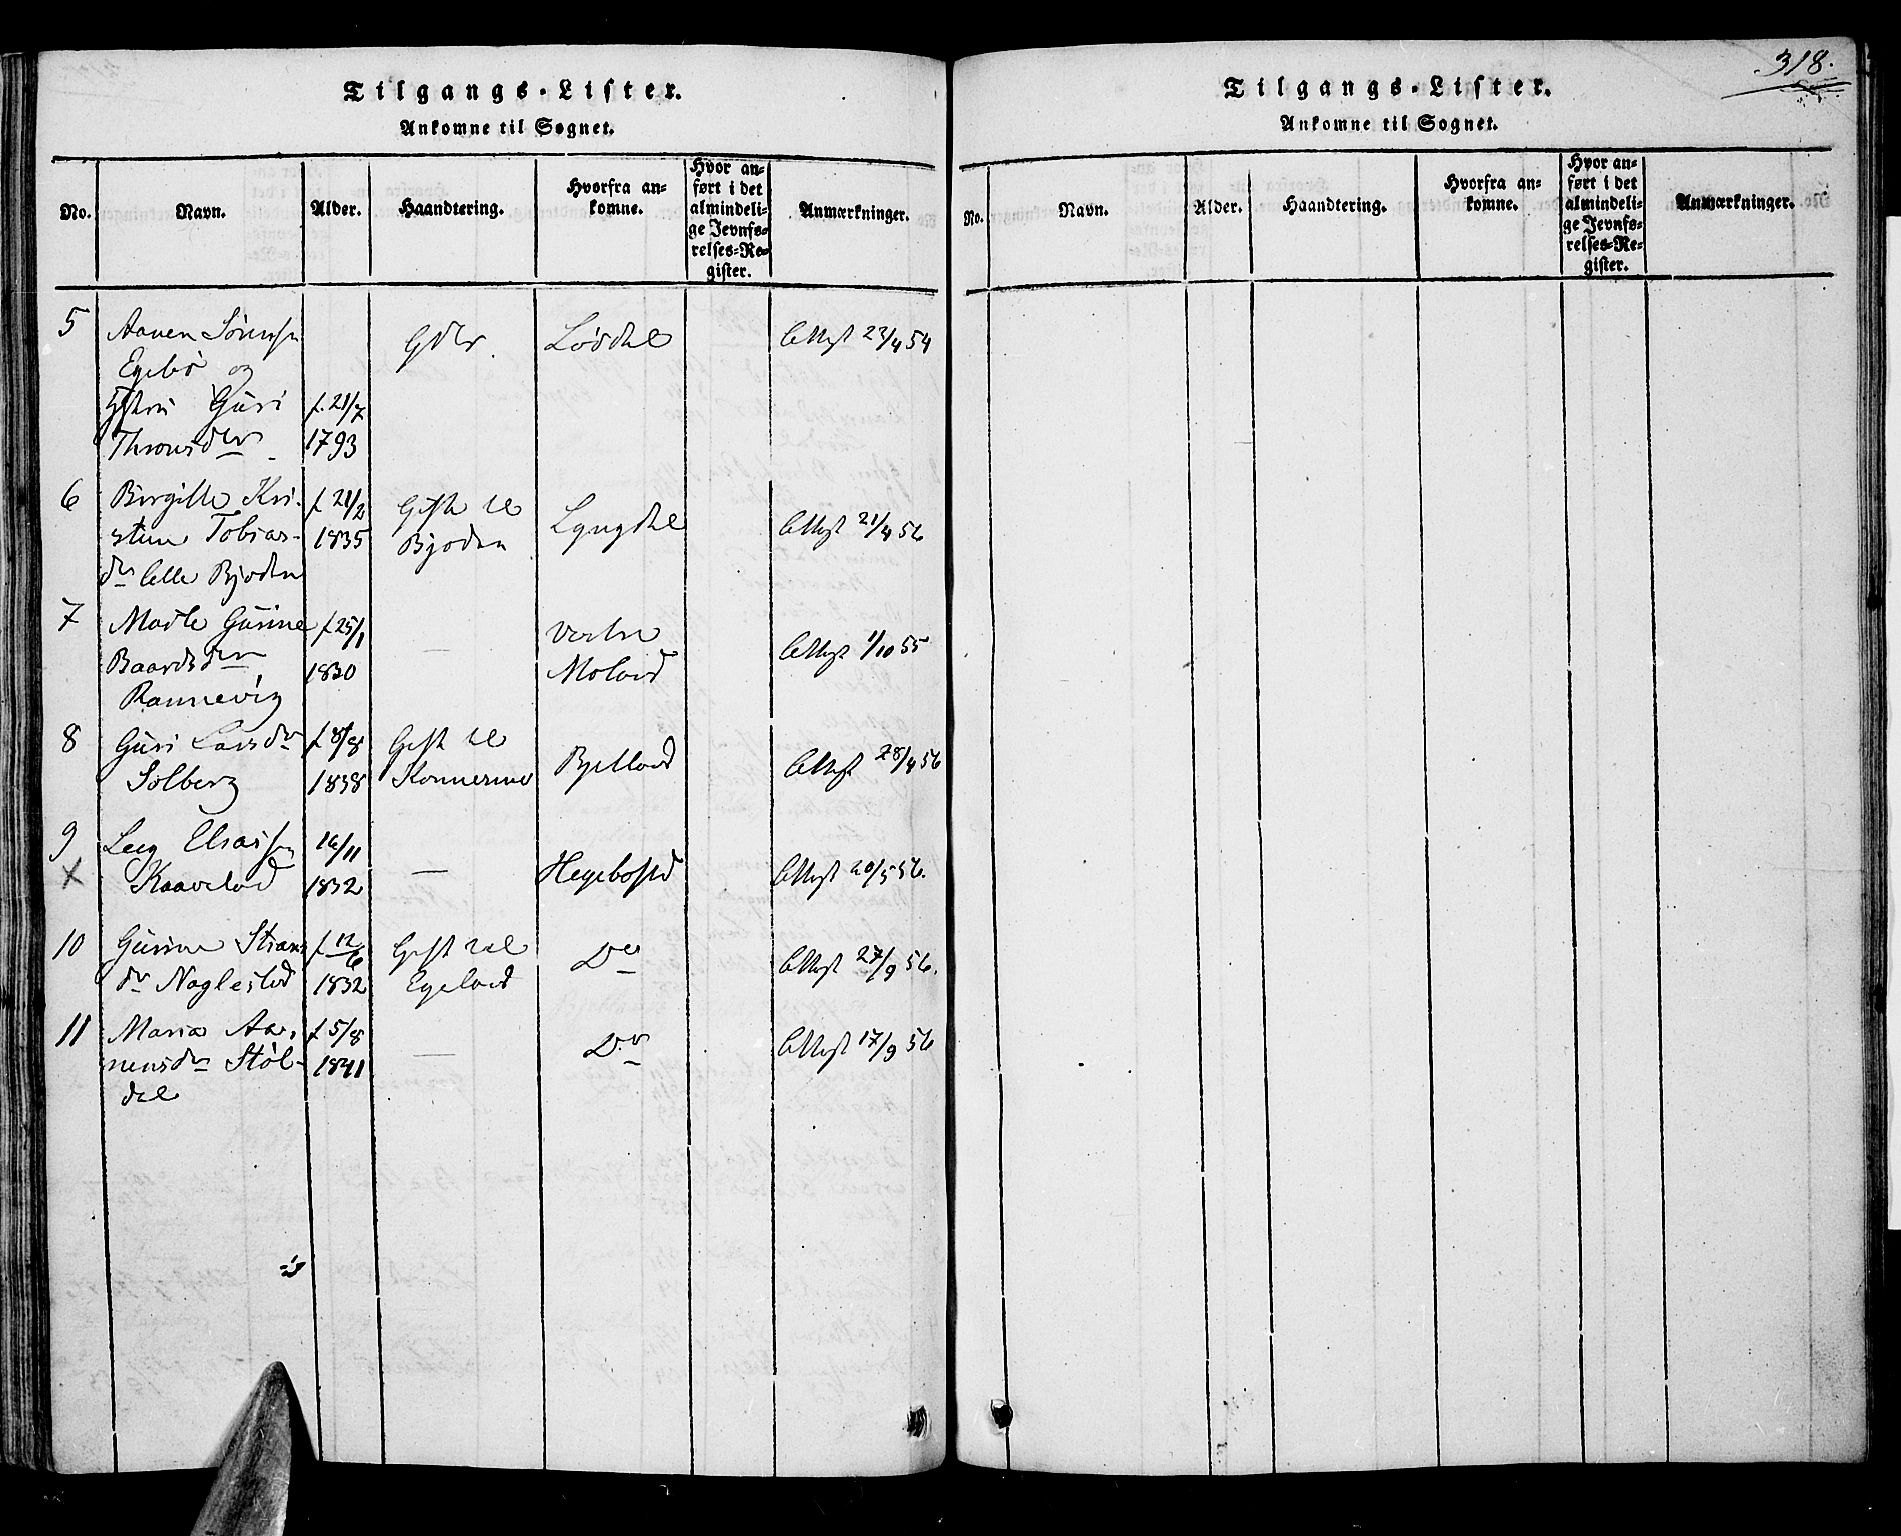 318.
Tilgangs-Lister.
Ankomne til Sognet.
No.
Navn.
Alder.
Haandtering.
Hvorfra an-
komne.
Hvor an-
ført i det
almindeli-
ge Jevnfø-
relses-Re-
gister.
Anmærkninger.
5
Aanen Sørensen
Egebø og
Hustru Guri
Thronsdr
f. 21/7
1793
Gdbr.
Lødal
Attest 23/4 54
6
Birgitte Kri-
stine Tobias-
dr Bjoden
f 21/2
1835
Gift til
Bjoden
Lyngdal
Attest 21/4 56
7
Marte Gurine
Baardsdr
Rannevig
f 25/1
1830
—
Vestre
Moland
Attest 1/10 55
8
Guri Larsdr
Solberg
f 8/8
1838
Gift til
Bjelland
Attest 28/4 56
9
X
Leeg Eliassen
Kaavelad
16/11
1832
—
Hegebostad
Attest 20/5 56.
10
Gurine
dr Naglestad
f 12/6
1832
Gift til
Egeland
Do
Attest 27/9 56.
11
Maria Aa-
nensdr Støl-
dal
f 5/8
1841
—
Do
Attest 17/9 56
Tilgangs-Lister.
Ankomne til Sognet.
No.
Navn.
Alder.
Haandtering.
Hvorfra an-
komne.
Hvor an-
ført i det
almindeli-
ge Jevnfø-
relses-Re-
gister.
Anmærkninger.